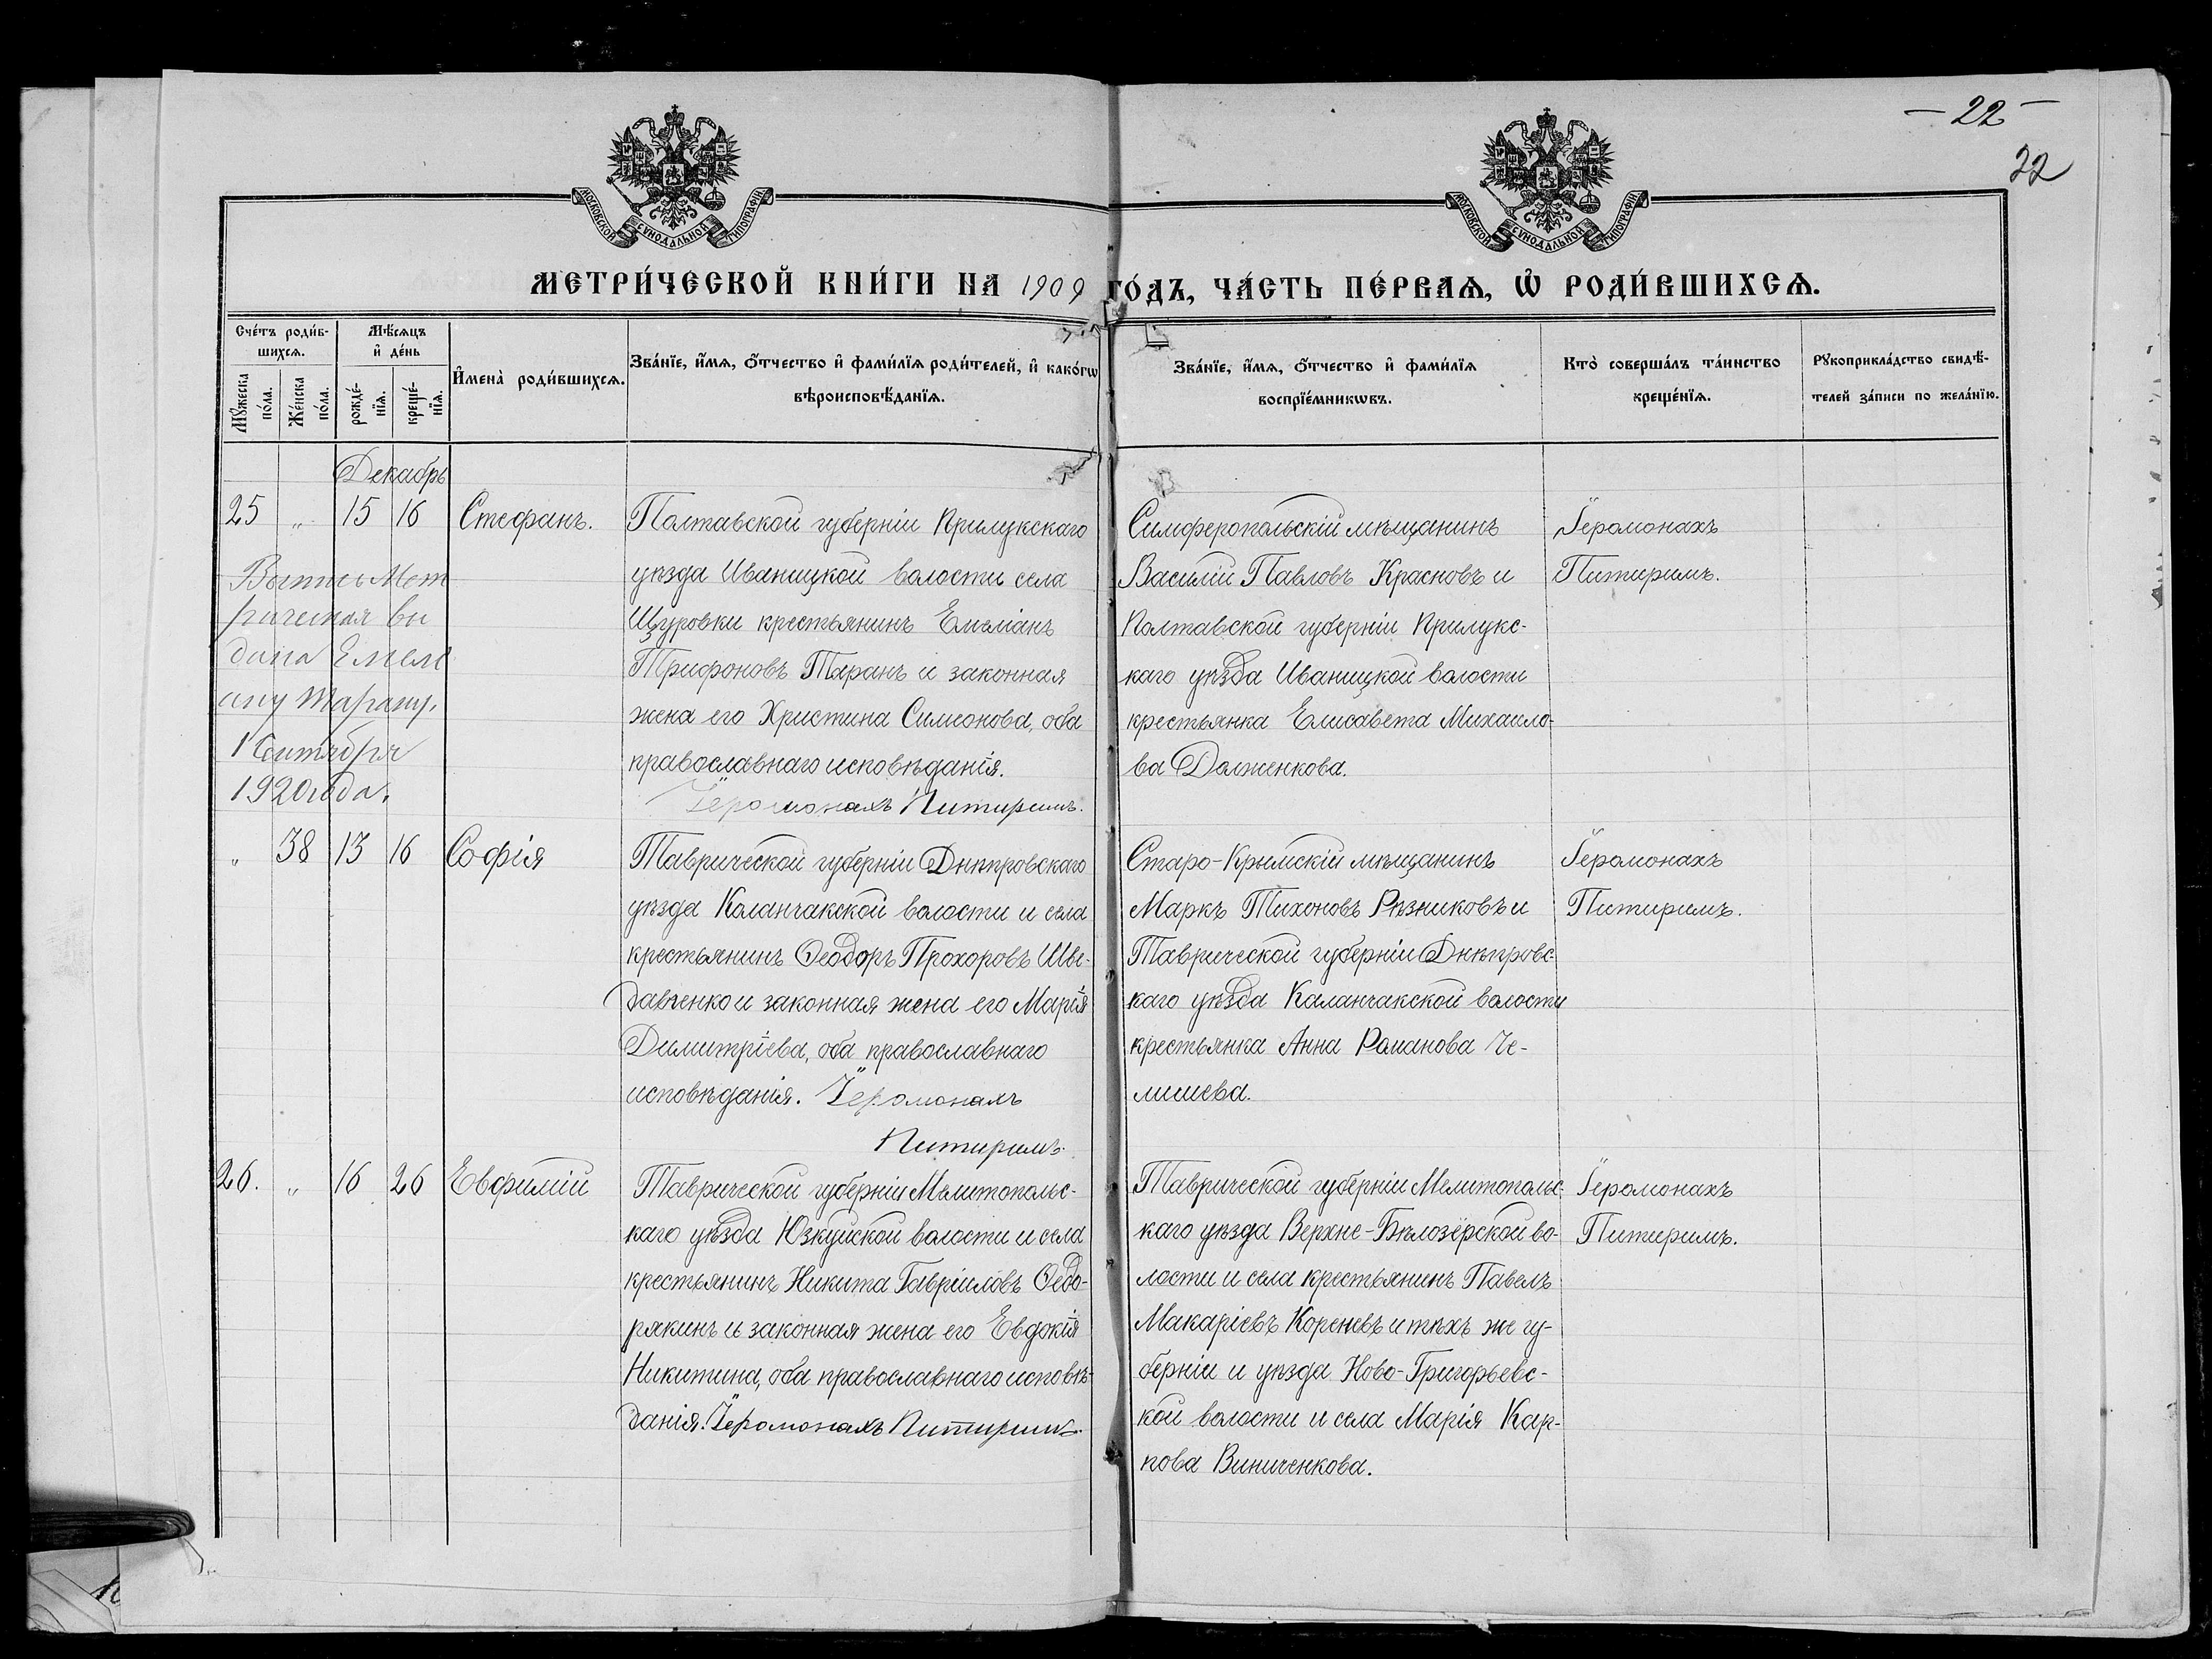 — 22 —
22
МОСКОВСКОЙ СУНОДАЛЬНОЙ ТИПОГРАФІИ
МОСКОВСКОЙ СУНОДАЛЬНОЙ ТИПОГРАФІИ
МЕТРИ́ЧЕСКОЙ КНИ́ГИ НА 1909 ГО́ДЪ, ЧА́СТЬ ПЕ́РВАѦ, Ѡ҆ РОДИ́ВШИХСѦ.
Сче́тъ роди́в-
шихсѧ.
Мѣ́сѧцъ
и҆ де́нь
Мꙋ́жеска
по́ла.
Же́нска
по́ла.
рожде́-
нїѧ.
креще́-
нїѧ.
И҆мена̀ роди́вшихсѧ.
Зва́нїе, и҆́мѧ, ѻ҆́тчество и҆ фами́лїѧ роди́телей, и҆ како́гѡ
вѣроисповѣ́данїѧ.
Зва́нїе, и҆́мѧ, ѻ҆́тчество и҆ фами́лїѧ
воспрїе́мникѡвъ.
Кто̀ соверша́лъ та́инство
креще́нїѧ.
Рꙋкоприкла́дство свидѣ́-
телей за́писи по жела́нїю.
Декабрь
25 „ 15 16 Стефанъ.
Полтавской губерніи Прилукскаго
уѣзда Иваницкой волости села
Щуровки крестьянинъ Емеліанъ
Трифоновъ Таранъ и законная
жена его Христина Симеонова, оба
православнаго исповѣданія.
Іеромонахъ Питиримъ.
Симферопольскій мѣщанинъ
Василій Павловъ Красновъ и
Полтавской губерніи Прилукс-
каго уѣзда Иваницкой волости
крестьянка Елисавета Михаило-
ва Долженкова.
Іеромонахъ
Питиримъ.
Выпись Мет
рическая вы
дана Емель
яну Тарану.
1 Сентября
1920 года.
„ 38 13 16 Софія
Таврической губерніи Днѣпровскаго
уѣзда Каланчакской волости и села
крестьянинъ Ѳеодоръ Прохоровъ Шве-
давченко и законная жена его Марія
Димитріева, оба православнаго
исповѣданія. Іеромонахъ
Питиримъ.
Старо-Крымскій мѣщанинъ
Маркъ Тихоновъ Рѣзниковъ и
Таврической губерніи Днѣпровс-
каго уѣзда Каланчакской волости
крестьянка Анна Романова Че-
лишева.
Іеромонахъ
Питиримъ.
26. „ 16 26 Евфимій
Таврической губерніи Мелитопольс-
каго уѣзда Юзкуйской волости и села
крестьянинъ Никита Гавріиловъ Ѳедо-
рякинъ и законная жена его Евдокія
Никитина, оба православнаго исповѣ-
данія. Іеромонахъ Питиримъ.
Таврической губерніи Мелитопольс-
каго уѣзда Верхне-Бѣлозёрской во-
лости и села крестьянинъ Павелъ
Макаріевъ Кореневъ и тѣхъ же гу-
берніи и уѣзда Ново-Григорьевс-
кой волости и села Марія Кар-
пова Виниченкова.
Іеромонахъ
Питиримъ.